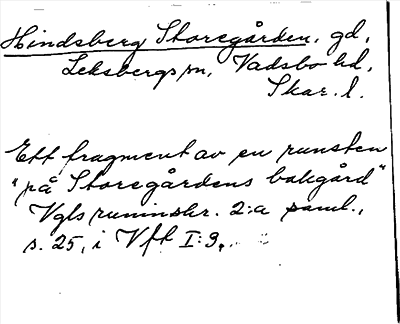 Hindsberg Storegården, gd,
Leksbergs sn, Vadsbo hd,
Skar. l.
Ett fragment av en runsten
"på Storegårdens bakgård"
Vgls runinskr. 2:a saml.,
s. 25, i Vft I:9,.